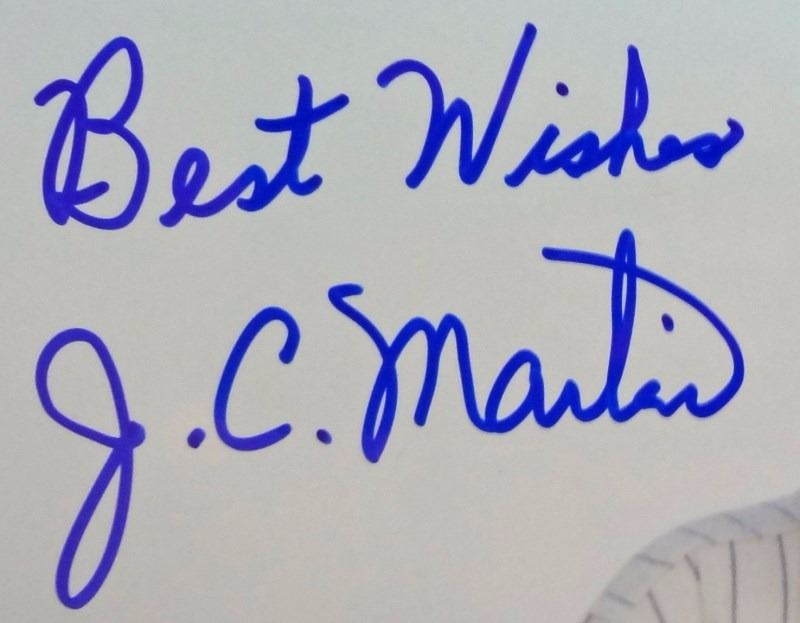 Best Wishes
J.C. Martin